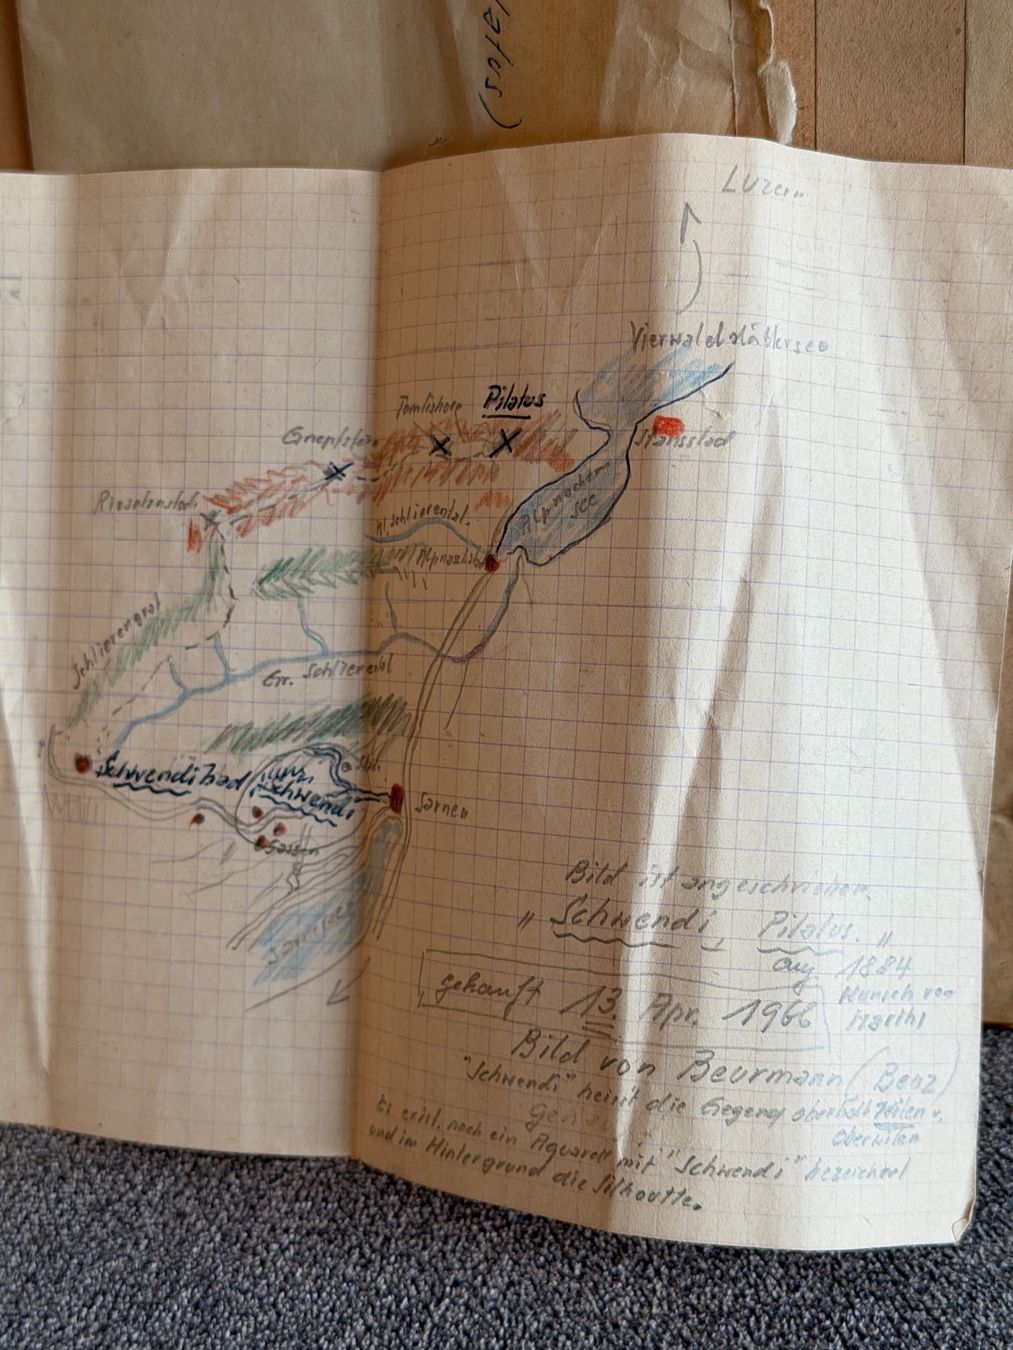 Luzern
Vierwaldstättersee
Pilatus
Tomlishorn
Stansstad
Gnepfstein
Alpnacher
see
Kl. Schlierental.
Alpnachstad
Schlierengrat
Gr. Schlierental
Schwendi Bad
Schwendi
Sarnen
Gassen
Sarnersee
Bild ist angeschrieben
" Schwendi, Pilatus. "
aug. 1884
gekauft 13. Apr. 1966
Bild von Beurmann (Benz)
"Schwendi" heisst die Gegend oberhalb
Oberwilen
Es exist. noch ein Aquarell mit "Schwendi" bezeichnet
und im Hintergrund die Silhoutte.